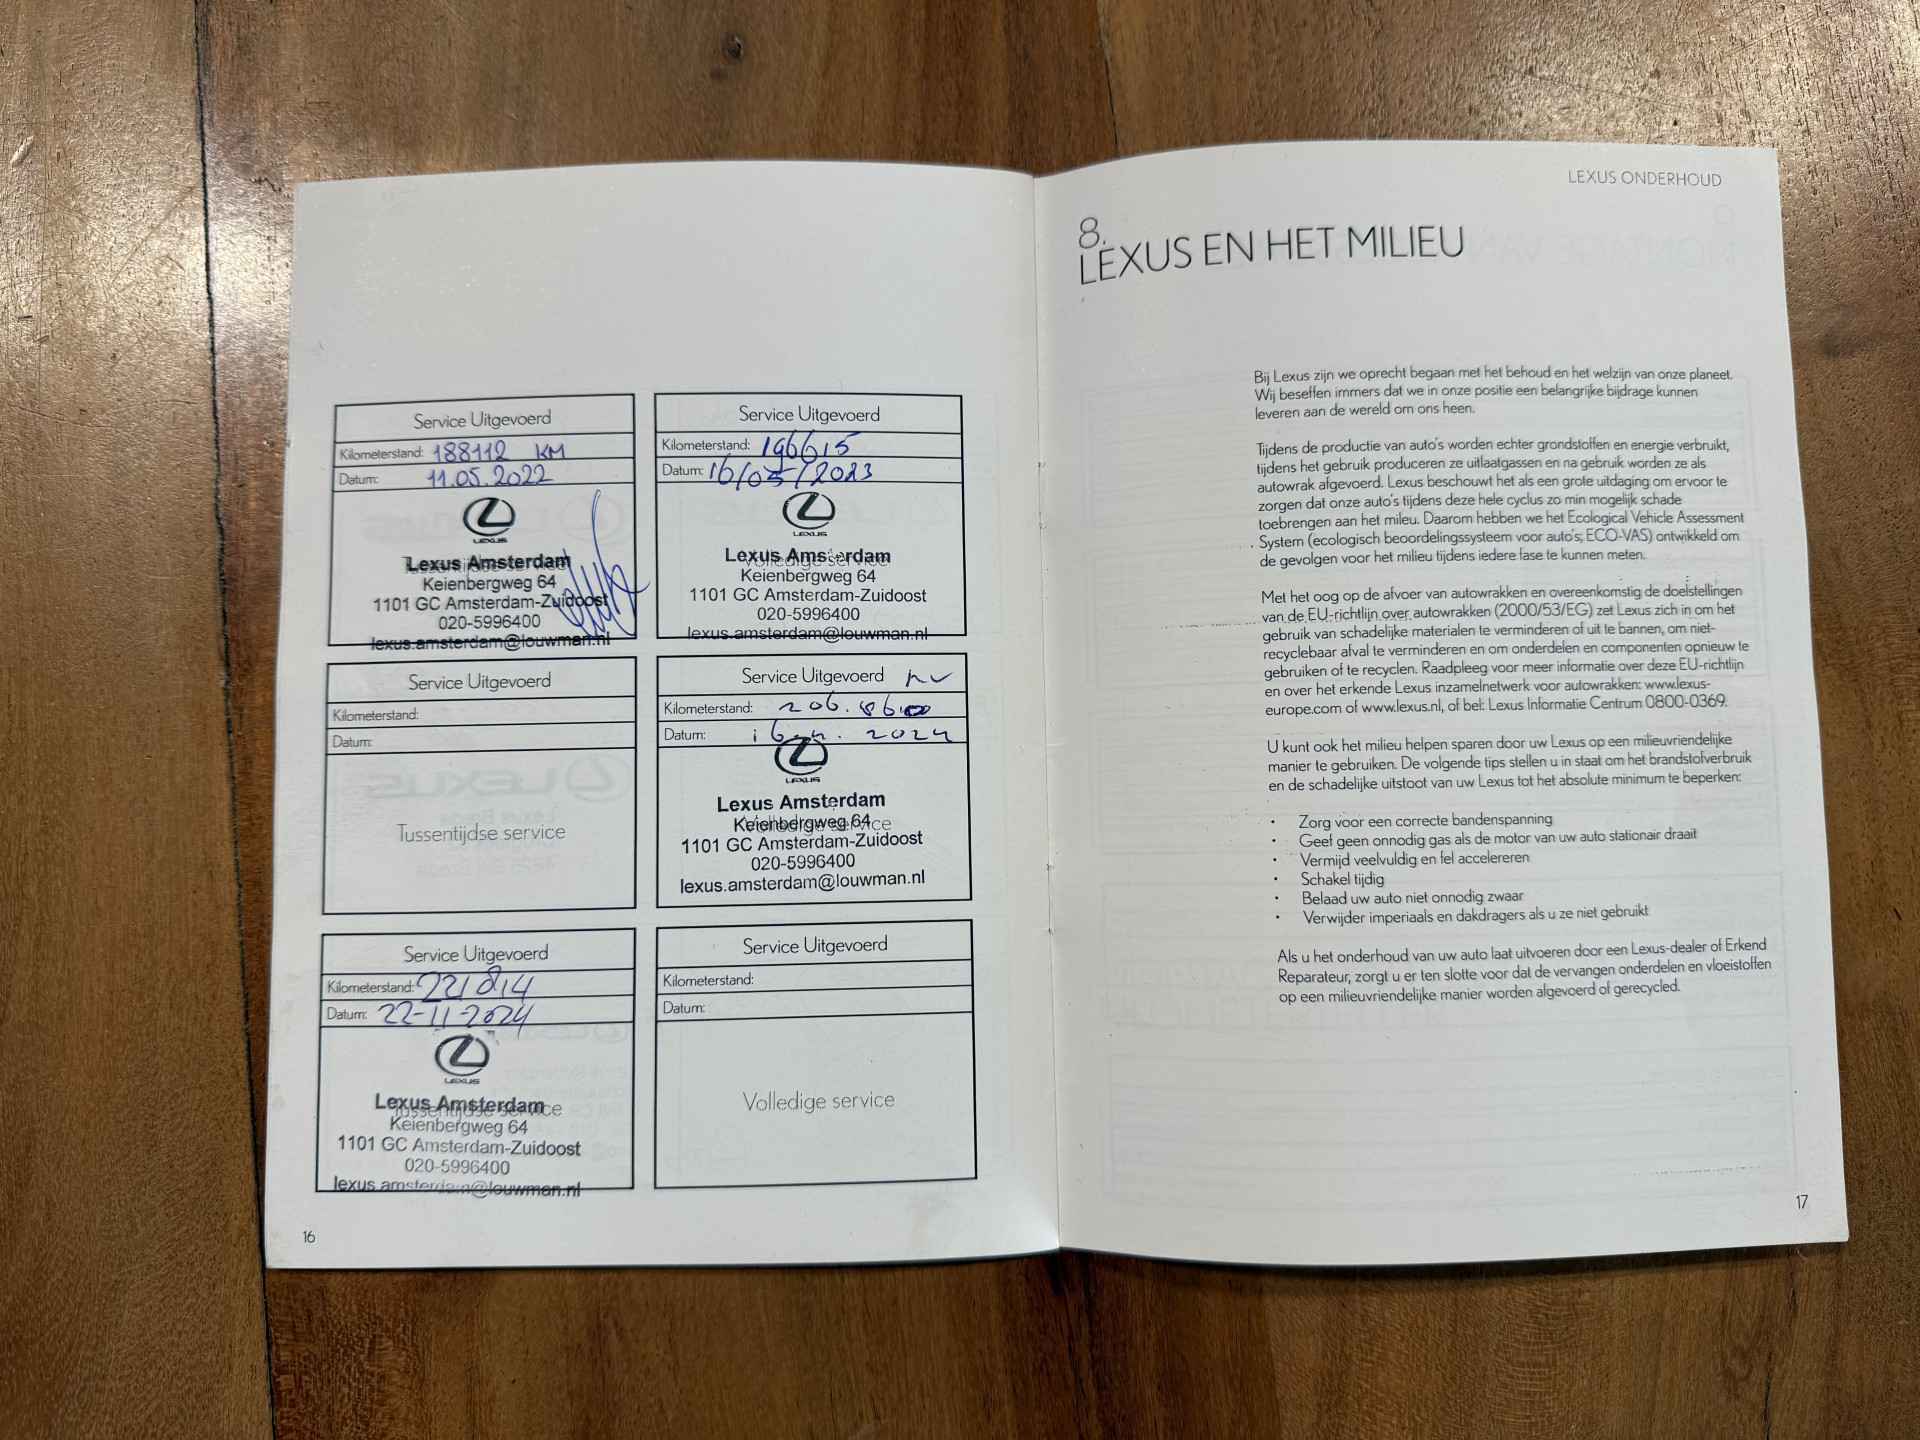 Service Uitgevoerd
Kilometerstand: 188112 KM
Datum: 11.05.2022
LEXUS
Lexus Amsterdam
Tussentijdse service
Keienbergweg 64
1101 GC Amsterdam-Zuidoost
020-5996400
lexus.amsterdam@louwman.nl
Service Uitgevoerd
Kilometerstand: 196615
Datum: 16/05/2023
LEXUS
Lexus Amsterdam
Volledige service
Keienbergweg 64
1101 GC Amsterdam-Zuidoost
020-5996400
lexus.amsterdam@louwman.nl
Service Uitgevoerd
Kilometerstand:
Datum:
Tussentijdse service
Service Uitgevoerd
Kilometerstand:
Datum: 2024
LEXUS
Lexus Amsterdam
Keienbergweg 64
Volledige service
1101 GC Amsterdam-Zuidoost
020-5996400
lexus.amsterdam@louwman.nl
Service Uitgevoerd
Kilometerstand: 221814
Datum: 22-11-2024
LEXUS
Lexus Amsterdam
Tussentijdse service
Keienbergweg 64
1101 GC Amsterdam-Zuidoost
020-5996400
lexus.amsterdam@louwman.nl
Service Uitgevoerd
Kilometerstand:
Datum:
Volledige service
16
LEXUS ONDERHOUD
8.
LEXUS EN HET MILIEU
Bij Lexus zijn we oprecht begaan met het behoud en het welzijn van onze planeet.
Wij beseffen immers dat we in onze positie een belangrijke bijdrage kunnen
leveren aan de wereld om ons heen.
Tijdens de productie van auto's worden echter grondstoffen en energie verbruikt,
tijdens het gebruik produceren ze uitlaatgassen en na gebruik worden ze als
autowrak afgevoerd. Lexus beschouwt het als een grote uitdaging om ervoor te
zorgen dat onze auto's tijdens deze hele cyclus zo min mogelijk schade
toebrengen aan het milieu. Daarom hebben we het Ecological Vehicle Assessment
System (ecologisch beoordelingssysteem voor auto's; ECO-VAS) ontwikkeld om
de gevolgen voor het milieu tijdens iedere fase te kunnen meten.
Met het oog op de afvoer van autowrakken en overeenkomstig de doelstellingen
van de EU-richtlijn over autowrakken (2000/53/EG) zet Lexus zich in om het
gebruik van schadelijke materialen te verminderen of uit te bannen, om niet-
recyclebaar afval te verminderen en om onderdelen en componenten opnieuw te
gebruiken of te recyclen. Raadpleeg voor meer informatie over deze EU-richtlijn
en over het erkende Lexus inzamelnetwerk voor autowrakken: www.lexus-
europe.com of www.lexus.nl, of bel: Lexus Informatie Centrum 0800-0369.
U kunt ook het milieu helpen sparen door uw Lexus op een milieuvriendelijke
manier te gebruiken. De volgende tips stellen u in staat om het brandstofverbruik
en de schadelijke uitstoot van uw Lexus tot het absolute minimum te beperken:
• Zorg voor een correcte bandenspanning
• Geef geen onnodig gas als de motor van uw auto stationair draait
• Vermijd veelvuldig en fel accelereren
• Schakel tijdig
• Belaad uw auto niet onnodig zwaar
• Verwijder imperiaals en dakdragers als u ze niet gebruikt
Als u het onderhoud van uw auto laat uitvoeren door een Lexus-dealer of Erkend
Reparateur, zorgt u er ten slotte voor dat de vervangen onderdelen en vloeistoffen
op een milieuvriendelijke manier worden afgevoerd of gerecycled.
17